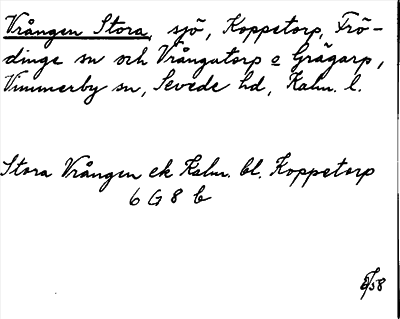 Vrången Stora, sjö, Koppetorp, Frö-
dinge sn och Vrångatorp o Grägarp,
Vimmerby sn, Sevede hd, Kalm. l.
Stora Vrången ek Kalm. bl. Koppetorp
6 G 8 b
58